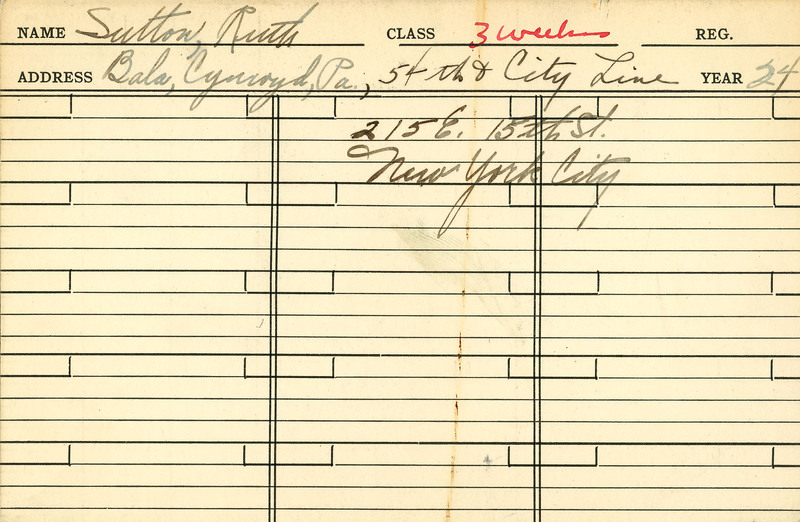 NAME Sutton, Ruth CLASS 3 weeks REG.
ADDRESS Bala, Cynwyd, Pa., 54th & City Line YEAR 24
215 E. 15th St.
New York City